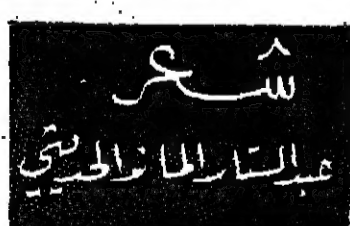 شعر
عبدالستار الحافظ الحديثي